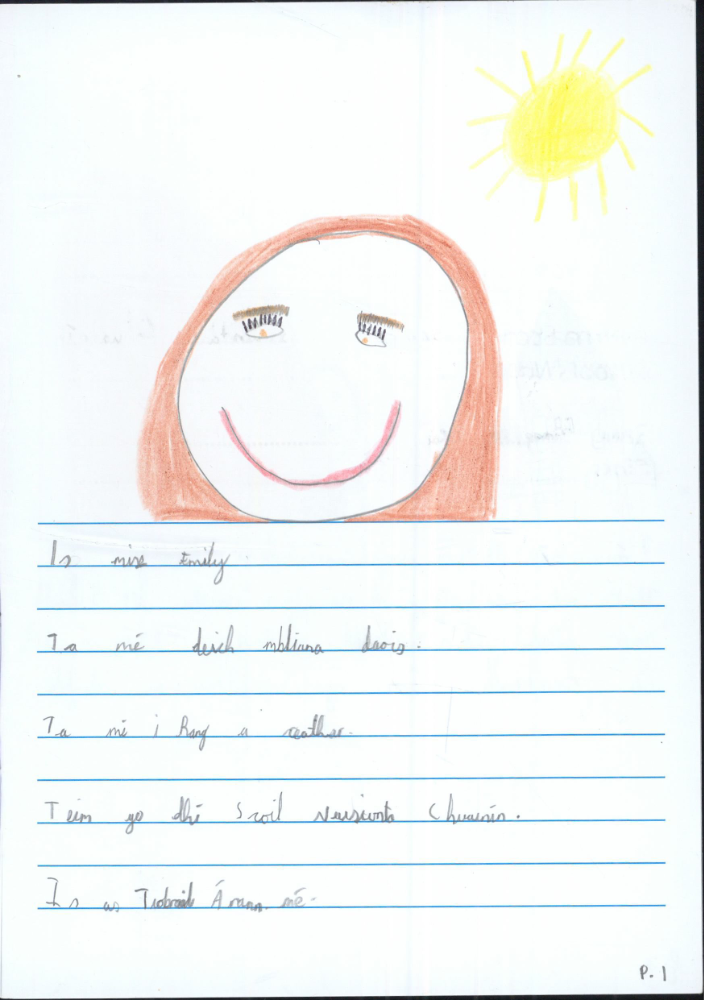 Is mise Emily
Ta mé deich mbliana daois.
Ta mé i Rang a ceathar.
Teim go dhé Scoil Naisiunta Chuainín.
Is as Tiobraid Árann mé.
P.1